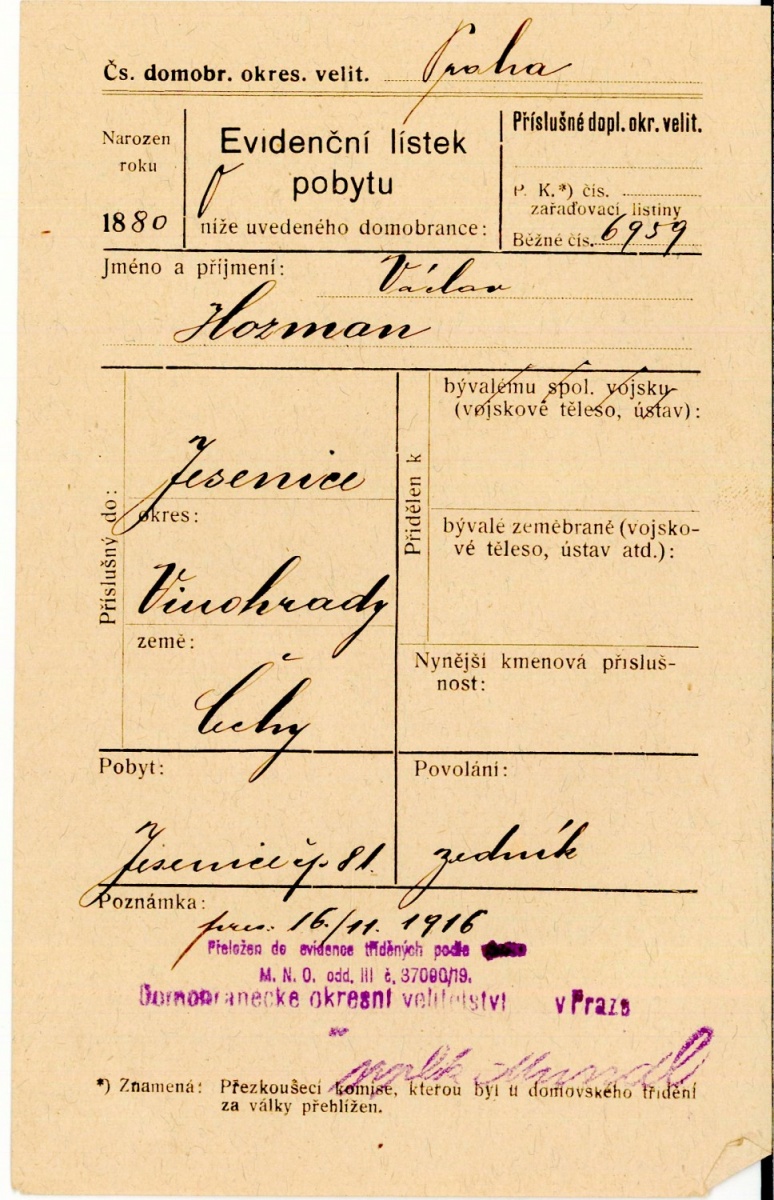 Čs. domobr. okres. velit. Praha
Narozen
roku
1880
Evidenční lístek
pobytu
níže uvedeného domobrance:
Příslušné dopl. okr. velit.
P. K.*) čís.
zařaďovací listiny
Běžné čís. 6959
Jméno a příjmení: Václav
Hozman
Příslušný do:
Jesenice
okres:
Vinohrady
země:
Čechy
Přidělen k
bývalému spol. vojsku
(vojskové těleso, ústav):
bývalé zeměbraně (vojsko-
vé těleso, ústav atd.):
Nynější kmenová přísluš-
nost:
Pobyt:
Jesenice čp 81.
Povolání:
zedník
Poznámka:
pres. 16./11. 1916
Přeložen do evidence tříděných podle
M. N. O. odd. III č. 37090/19.
Domobranecké okresní velitelství v Praze
*) Znamená: Přezkoušecí komise, kterou byl u domovského třídění
za války přehlížen.